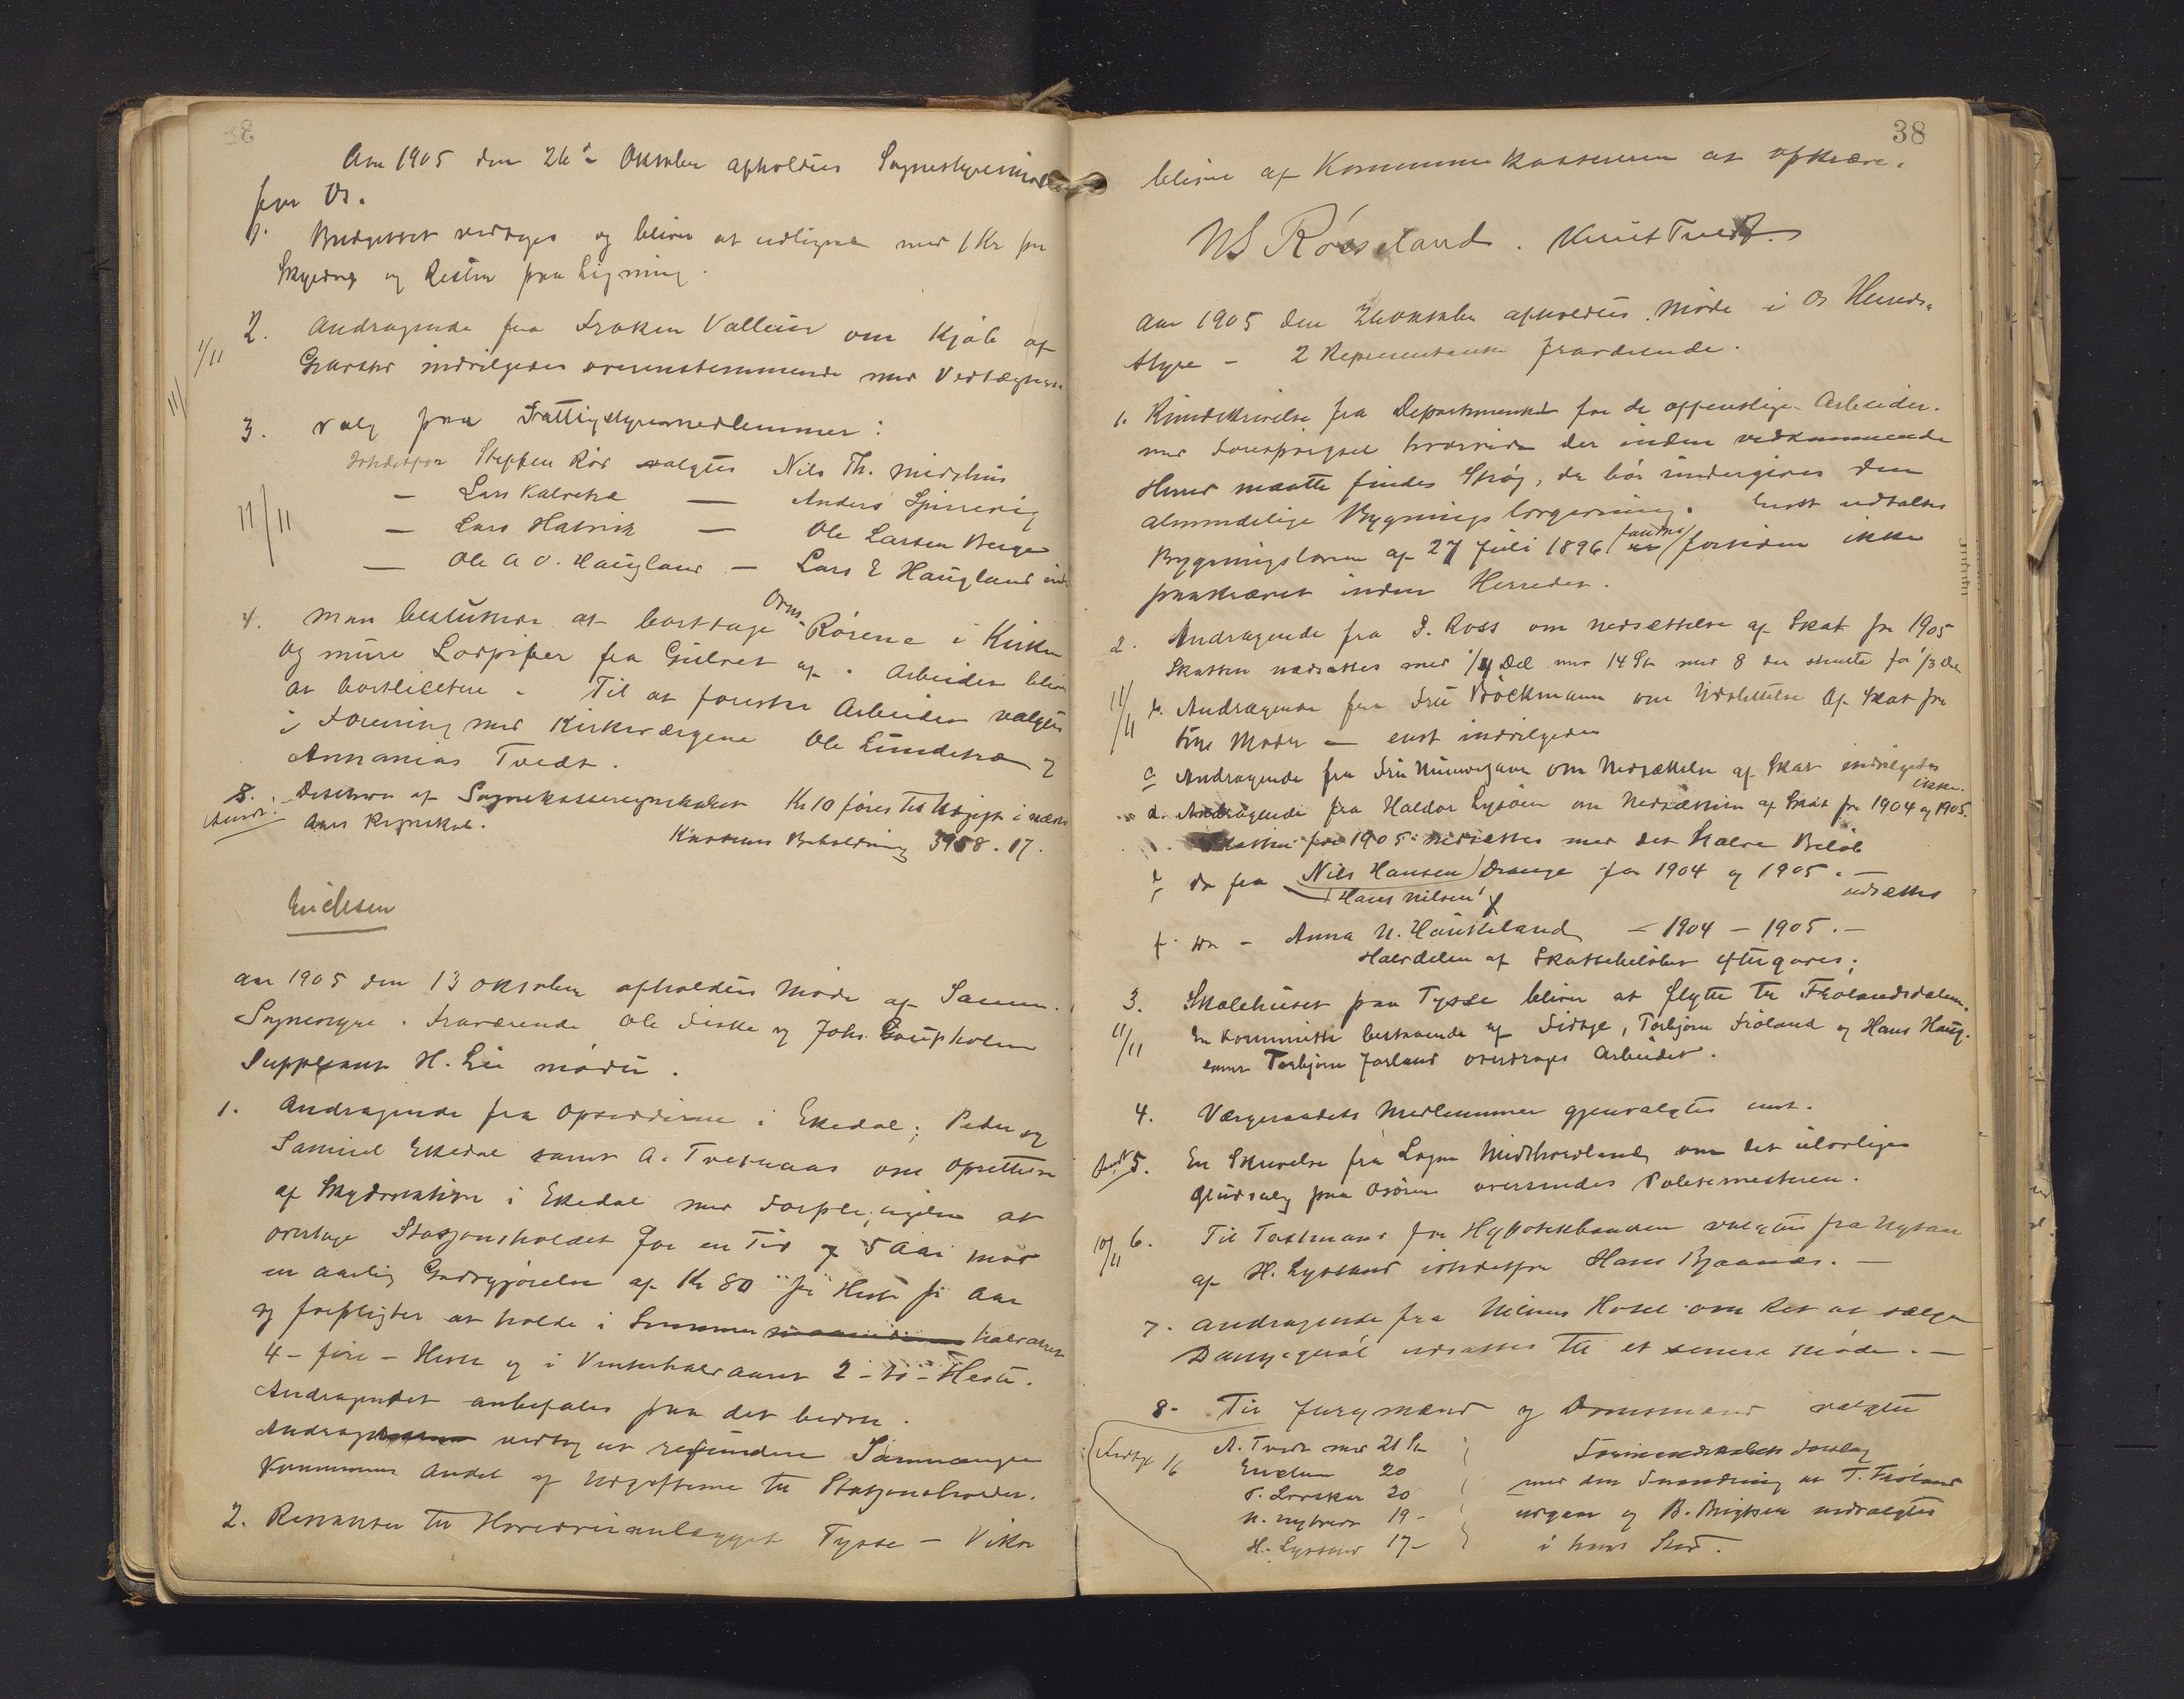 Aar 1905 den 26de Oktober afholdtes Sognestyremöde
for Os.
1. Budgettet vedtages og bliver at udligne med 1 Kr pr
Skyldmk og Resten paa Ligning.
2. Andragende fra Fröken Valleur om Kjöb af
1/11
Gravsted indvilgedes overensstemmende med Vedtægterne
11/
3. Valg paa Fattigstyremedlemmer:
Istedetfor Steffen Röd valgtes Nils Th. Midthus
— Lars Kalvetræ — Anders Spinnevig
11/11
— Lars Hatvik — Ole Larsen Berge
— Ole A O. Haugland — Lars E Haugland
4. Man besluttede at borttage Orns-Rörene i Kirken
og mure Lodpiber fra Gulvet af. Arbeidet bliver
at bortlicitere. Til at forestaa Arbeidet valgtes
i Forening med Kirkeværgene Ole Lundetræ og
Annanias Tvedt.
8. Decision af Sognekasseregnskabet Kr 10 föres til Udgift i næste
Aars Regnskab.
Kassens Beholdning 3958.17.
Erichsen
Aar 1905 den 13 Oktober afholdtes Möde af Samn.
Sognestyre. Fraværende Ole Fiske og Johs. Gaupholm
Suppleant H. Lie mödte.
1. Andragende fra Opsidderne i Ekedal; Peder og
Samuel Ekedal samt A. Tveteraas om Oprettelse
af Skydsstation i Ekedal med Forpligtigelse at
overtage Stasjonsholdet for en Tid af 5 Aar mod
en aarlig Godtgjörelse af Kr 80 pr Hest pr Aar
og forpligter at holde i Sommer maanederne halvaaret
4 - fire - Heste og i Vinterhalvaaret 2 - to - Heste.
Andragendet anbefales paa det bedste.
vedtog at refundere Samnanger
Kommunes Andel af Udgifterne til Stasjonsholdet.
2. Restanter til Hovedveianlægget Tysse - Vikor
38
bliver af Kommunekassereren at opkræve.
NS Röiseland. Knut Tvedt.
Aar 1905 den 26 Oktober afholdtes Möde i Os Herreds-
styre - 2 Representanter fraværende.
1. Rundskrivelse fra Departementet for de offentlige Arbeider.
med Forespörgsel hvorvidt der inden vedkommende
Herred maatte findes Ströy, der bör undergives den
almindelige Bygningslovgivning. Enst udtaltes
Bygningsloven af 27 Juli 1896 fandtes er fortiden ikke
paakrævet inden Herredet.
2. Andragende fra J. Ross om nedsættelse af Skat for 1905
Skatten nedsættes med 1/4 Del med 14 St mod 8 der stemte for 1/3 Del
11/11
b. Andragende fra Fru Böckmann om Udslettelse af Skat for
sine Möder — enst indvilgedes
c Andragende fra Fru Nünwejaar om Nedsættelse af Skat indvilgedes
ikke.
d. Andragende fra Haldor Lysöen om Nedsættelse af Skat for 1904 og 1905.
Skatten for 1905 nedsættes med det halve Belöb
e do fra Nils Hansen Drange for 1904 og 1905.—
Hans Nilsen
udsættes
f. do - Anna N. Haukeland - 1904 - 1905.—
Halvdelen af Skattebelöbet eftergives;
3. Skolehuset paa Tysse bliver at flytte til Frolandsdalen.
11/11
En Kommitte bestaaende af Tidtze, Torbjörn Fröland og Hans Haug.
samt Torbjörn Jarland overdrages Arbeidet.
4. Værgeraadets Medlemmer gjenvalgtes enst.
5. En Skrivelse fra Logen Midthordland om det ulovlige
Öludsalg paa Osören oversendes Politimesteren.
10/11
6. Til Taxtmand for Hypotekbanken valgtes fra Nytaar
af H. Lyssand istedetfor Hans Bjaanæs.—
7. Andragende fra Milnes Hotel om Ret at sælge
Bayersöl udsættes til et senere Möde.—
8. Til Jurymænd og Domsmænd valgtes
A. Tvedt med 21 St
Erichsen 20
T. Lorsker 20
N. Nytveit 19 -
H. Lyssand 17 -
Formandskabets Forslag
med den Forandring at T. Fröland
udgaar og B. Brigtsen indvalgtes
i hans Sted.